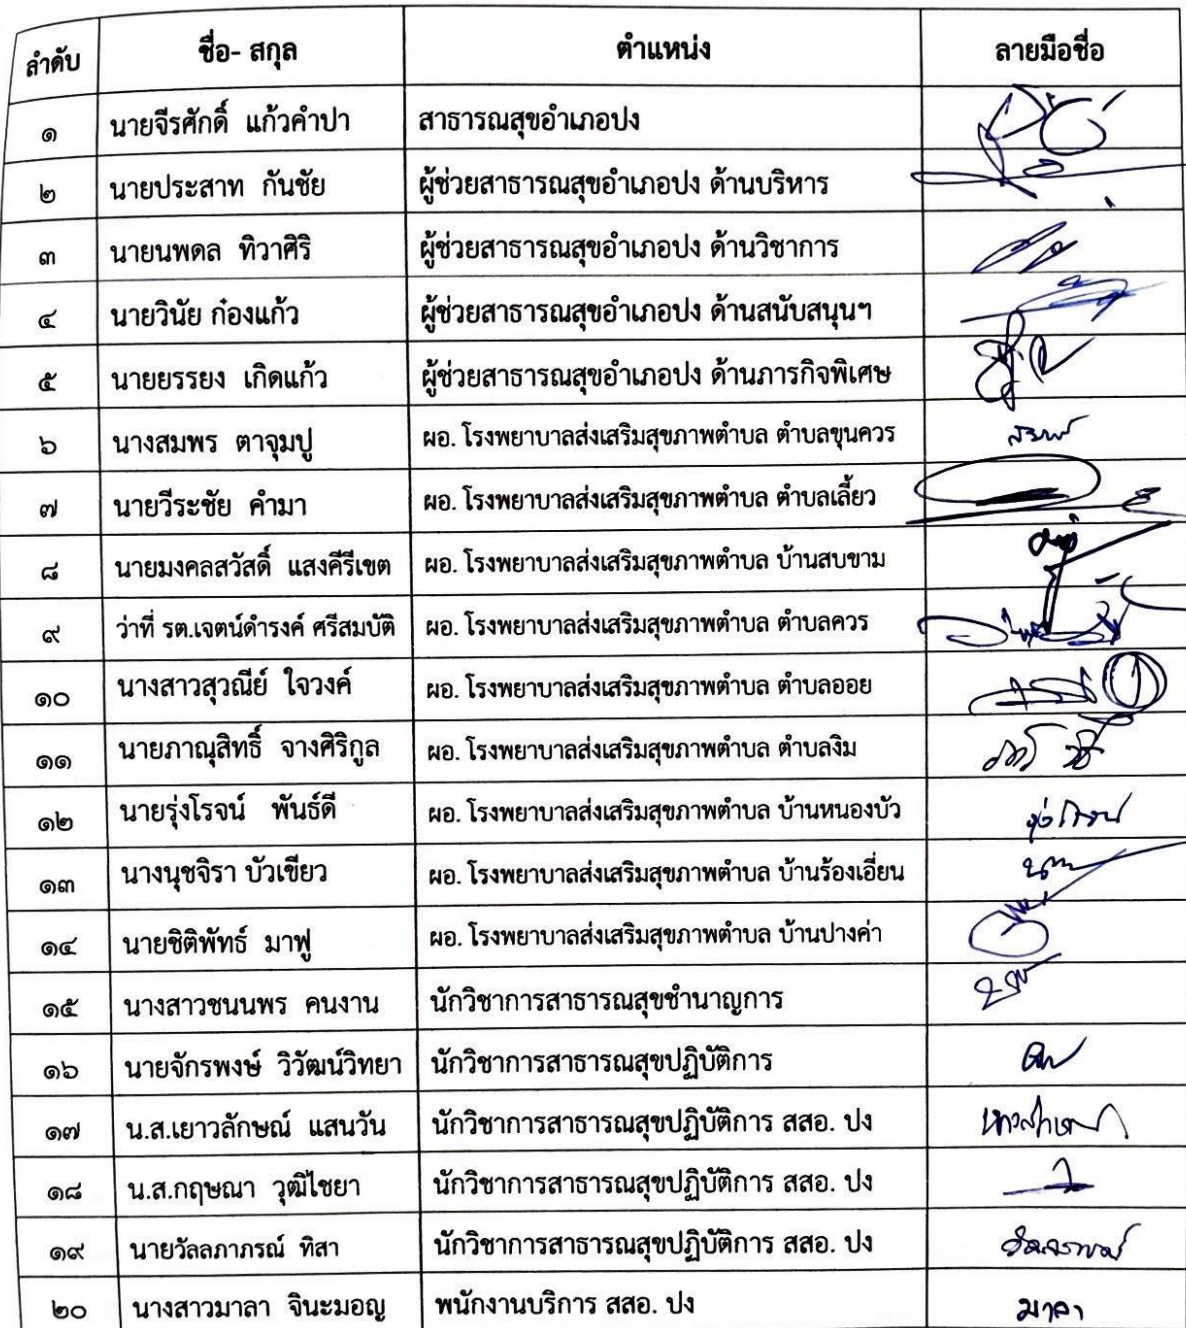 ลำดับ ชื่อ- สกุล ตำแหน่ง ลายมือชื่อ
๑ นายจีรศักดิ์ แก้วคำปา สาธารณสุขอำเภอปง
๒ นายประสาท กันชัย ผู้ช่วยสาธารณสุขอำเภอปง ด้านบริหาร
๓ นายนพดล ทิวาศิริ ผู้ช่วยสาธารณสุขอำเภอปง ด้านวิชาการ
๔ นายวินัย ก๋องแก้ว ผู้ช่วยสาธารณสุขอำเภอปง ด้านสนับสนุนฯ
๕ นายยรรยง เกิดแก้ว ผู้ช่วยสาธารณสุขอำเภอปง ด้านภารกิจพิเศษ
๖ นางสมพร ตาจุมปู ผอ. โรงพยาบาลส่งเสริมสุขภาพตำบล ตำบลขุนควร
๗ นายวีระชัย คำมา ผอ. โรงพยาบาลส่งเสริมสุขภาพตำบล ตำบลเลี้ยว
๘ นายมงคลสวัสดิ์ แสงคีรีเขต ผอ. โรงพยาบาลส่งเสริมสุขภาพตำบล บ้านสบขาม
๙ ว่าที่ รต.เจตน์ดำรงค์ ศรีสมบัติ ผอ. โรงพยาบาลส่งเสริมสุขภาพตำบล ตำบลควร
๑๐ นางสาวสุวณีย์ ใจวงค์ ผอ. โรงพยาบาลส่งเสริมสุขภาพตำบล ตำบลออย
๑๑ นายภาณุสิทธิ์ จางศิริกูล ผอ. โรงพยาบาลส่งเสริมสุขภาพตำบล ตำบลงิม
๑๒ นายรุ่งโรจน์ พันธ์ดี ผอ. โรงพยาบาลส่งเสริมสุขภาพตำบล บ้านหนองบัว
๑๓ นางนุชจิรา บัวเขียว ผอ. โรงพยาบาลส่งเสริมสุขภาพตำบล บ้านร้องเอี่ยน
๑๔ นายชิติพัทธ์ มาฟู ผอ. โรงพยาบาลส่งเสริมสุขภาพตำบล บ้านปางค่า
๑๕ นางสาวชนนพร คนงาน นักวิชาการสาธารณสุขชำนาญการ
๑๖ นายจักรพงษ์ วิวัฒน์วิทยา นักวิชาการสาธารณสุขปฏิบัติการ
๑๗ น.ส.เยาวลักษณ์ แสนวัน นักวิชาการสาธารณสุขปฏิบัติการ สสอ. ปง
๑๘ น.ส.กฤษณา วุฒิไชยา นักวิชาการสาธารณสุขปฏิบัติการ สสอ. ปง
๑๙ นายวัลลภาภรณ์ ทิสา นักวิชาการสาธารณสุขปฏิบัติการ สสอ. ปง
๒๐ นางสาวมาลา จินะมอญ พนักงานบริการ สสอ. ปง มาลา